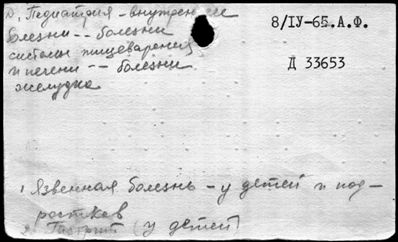 Педиатрия - внутренние
болезни -- болезни
системы пищеварения
и печени -- болезни
желудка
8/IУ-65.А.Ф.
Д 33653
1 Язвенная болезнь - у детей и под-
ростков
Гастрит (у детей)